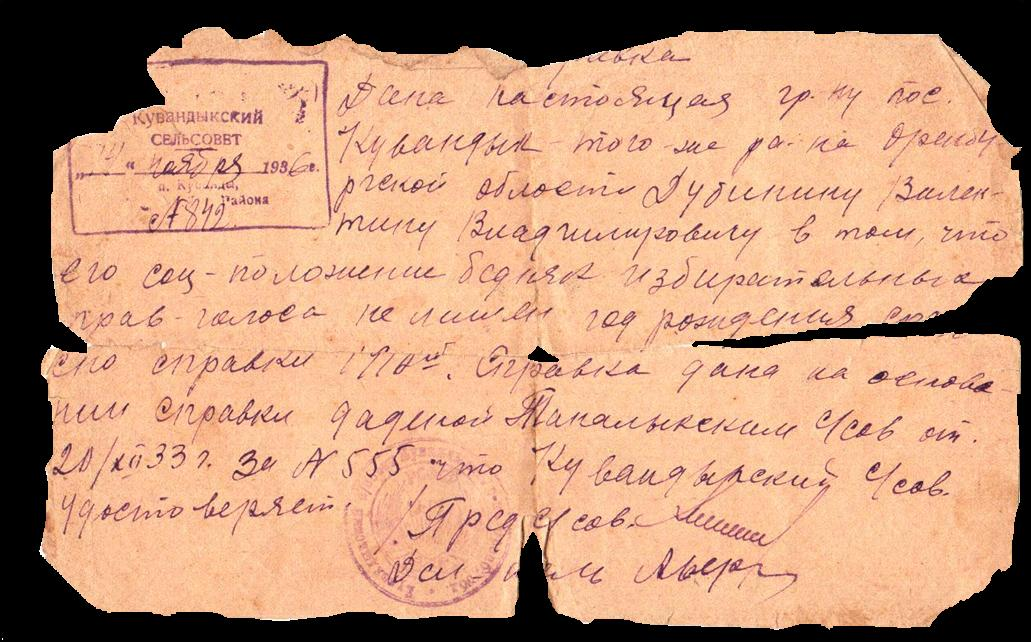 Кувандыкский
СЕЛЬСОВЕТ
" ноября 1936 г.
района
№ 842.
Дана настоящая гр-ну пос.
Кувандык того-же ра-на Оренбу-
ргской области Дубинину Вален-
тину Владимировичу в том, что
его соц-положение бедняк избирательных
прав-голоса не лишен год рождения согла
сно справки 1910 Справка дана на основа-
нии справки даденой Тапалыкским С/сов от.
20/XII 33 г. За № 555 что Кувандыкский С/сов.
удостоверяет.
Пред С/сов.